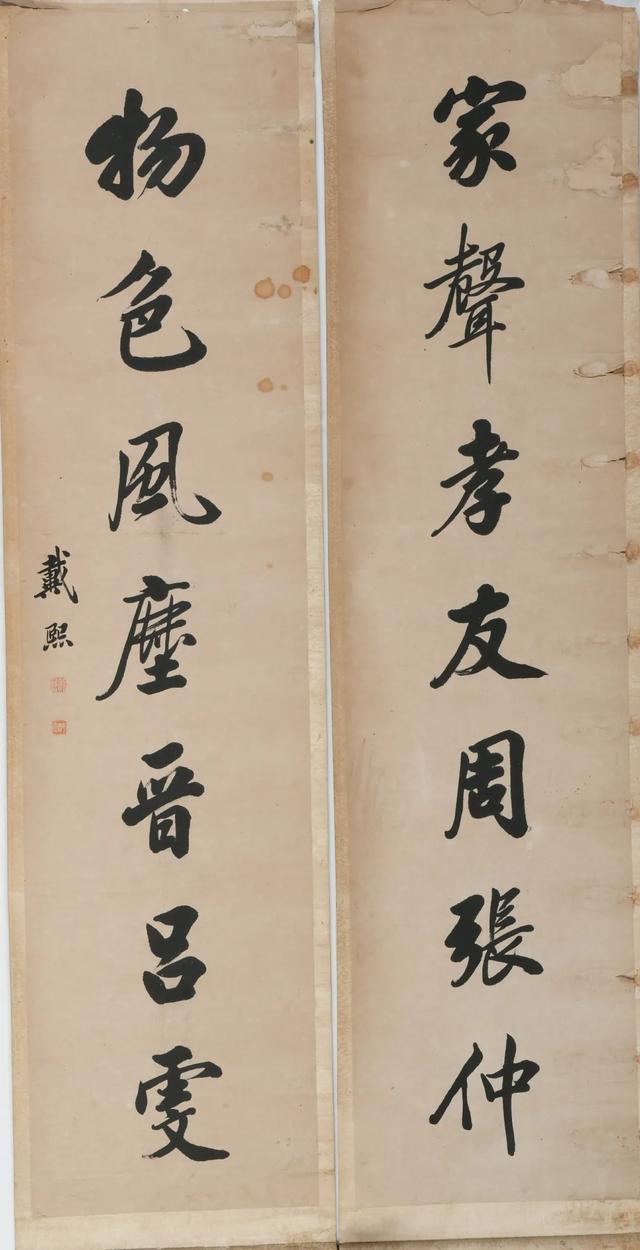 家聲孝友周張仲
物色風塵晋呂雯
戴熙